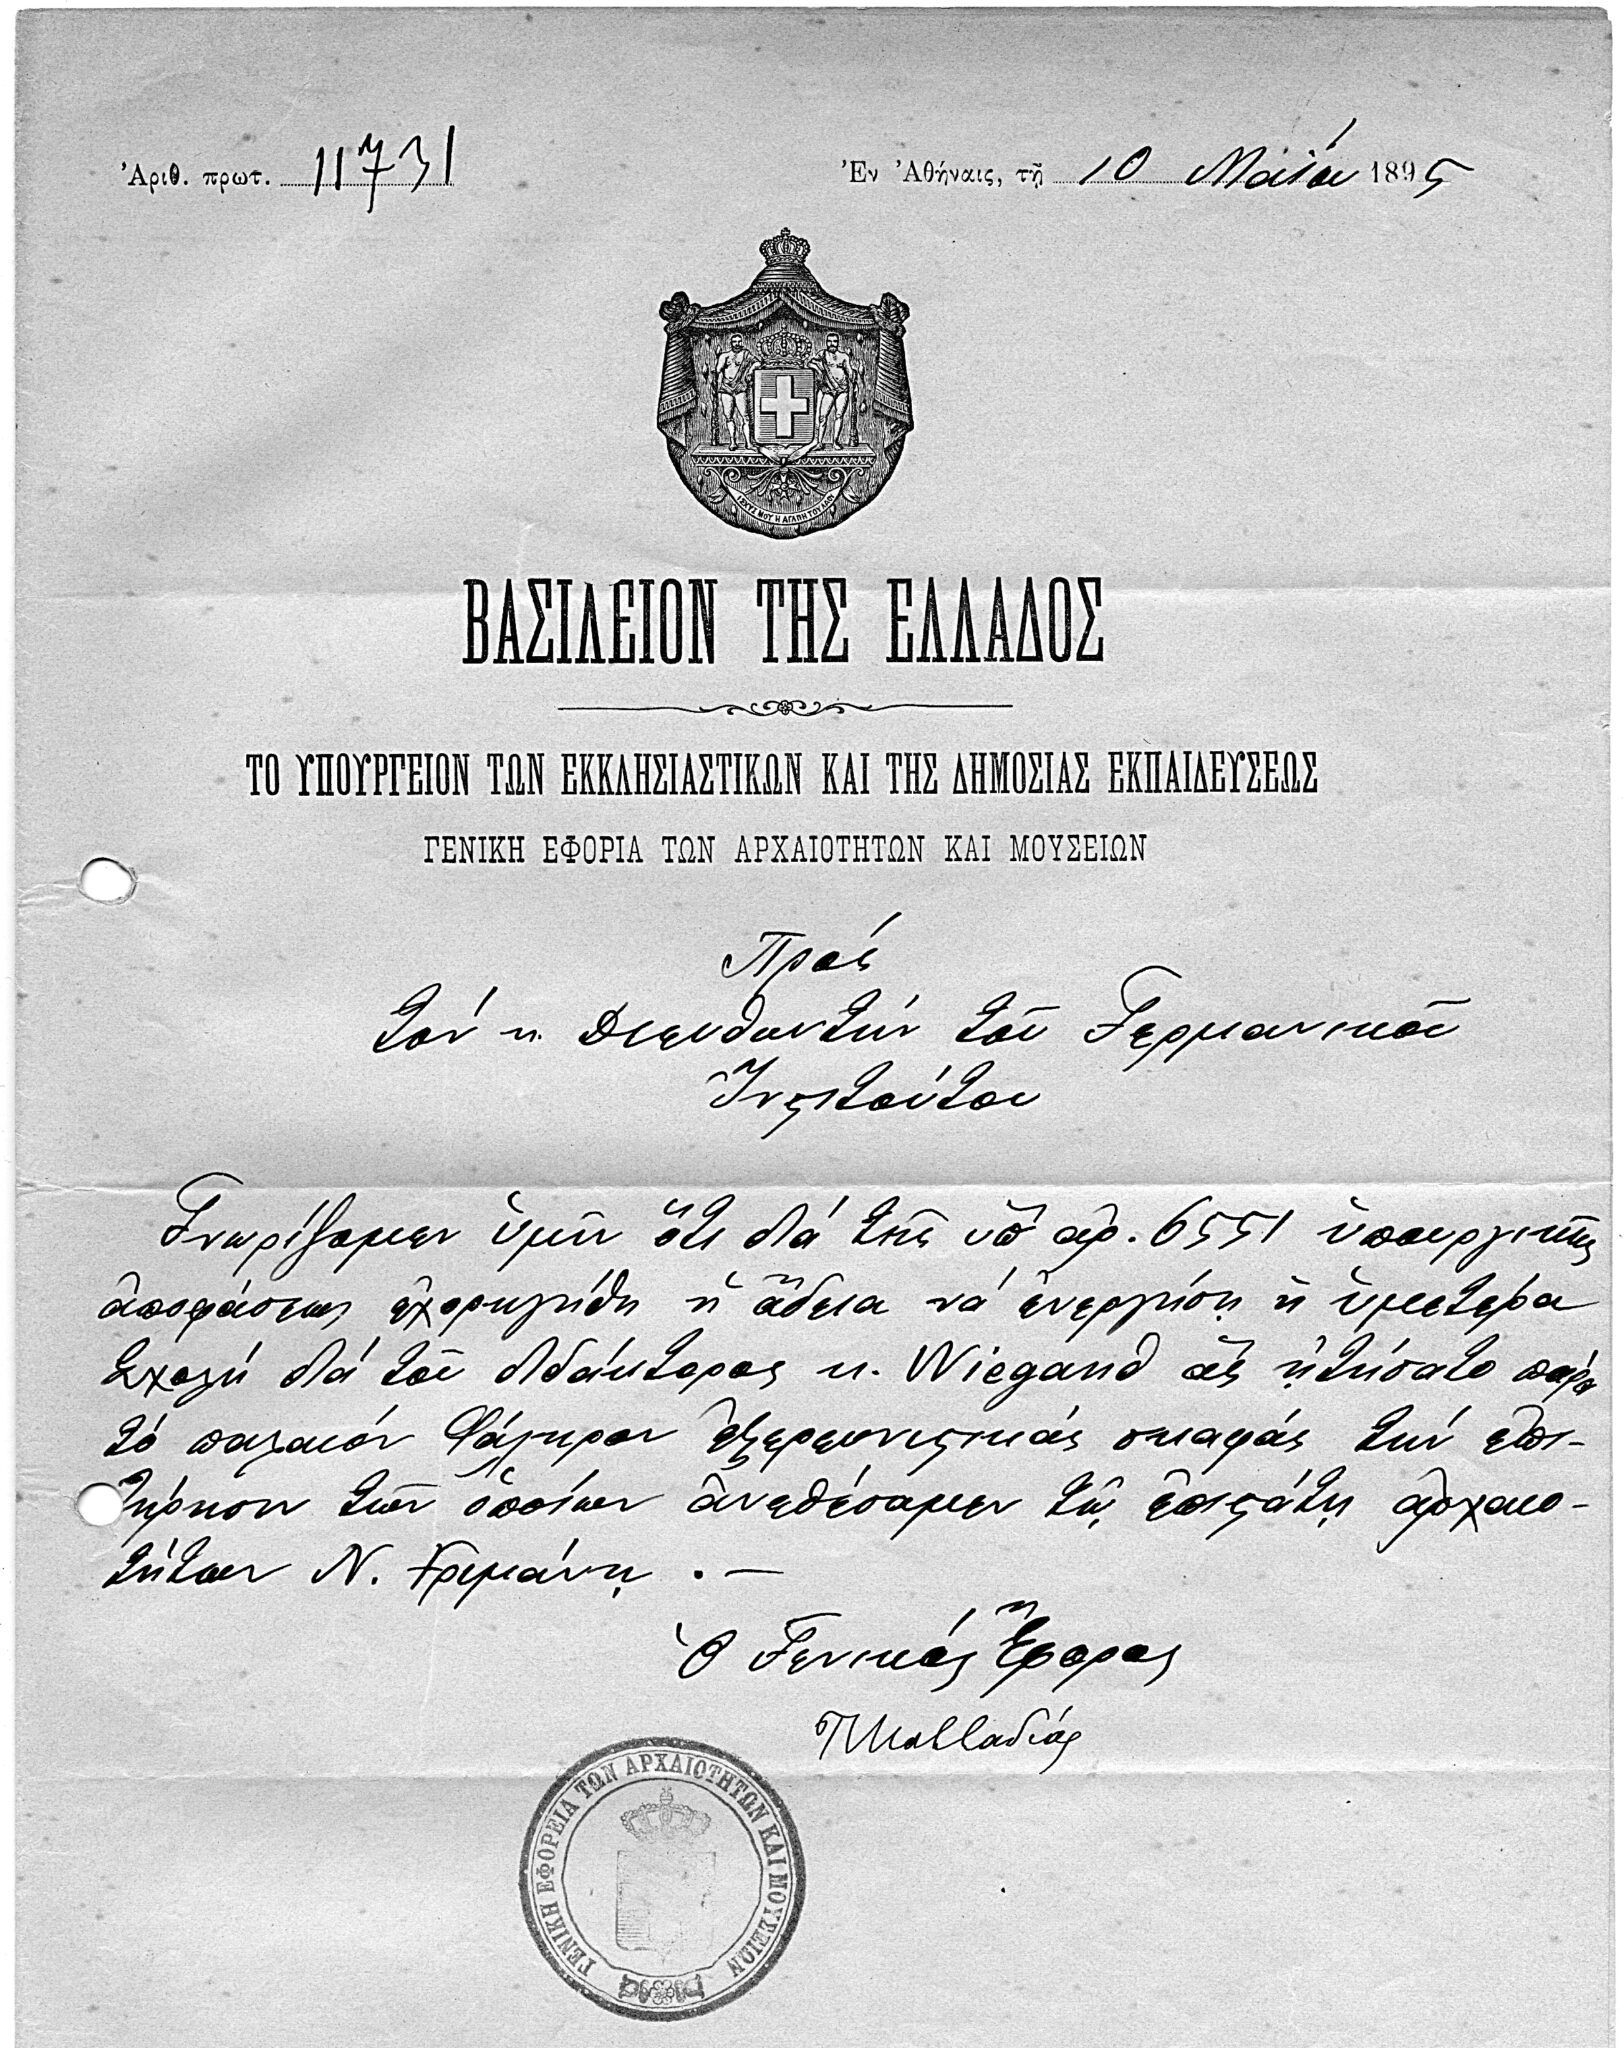 Ἀριθ. πρωτ. 11731
Ἐν Ἀθήναις, τῇ 10 Μαΐου 1895
ΙΣΧΥΣ ΜΟΥ Η ΑΓΑΠΗ ΤΟΥ ΛΑΟΥ
ΒΑΣΙΛΕΙΟΝ ΤΗΣ ΕΛΛΑΔΟΣ
ΤΟ ΥΠΟΥΡΓΕΙΟΝ ΤΩΝ ΕΚΚΛΗΣΙΑΣΤΙΚΩΝ ΚΑΙ ΤΗΣ ΔΗΜΟΣΙΑΣ ΕΚΠΑΙΔΕΥΣΕΩΣ
ΓΕΝΙΚΗ ΕΦΟΡΙΑ ΤΩΝ ΑΡΧΑΙΟΤΗΤΩΝ ΚΑΙ ΜΟΥΣΕΙΩΝ
Πρὸς
τὸν κ. Διευθυντὴν τοῦ Γερμανικοῦ
Ἰνστιτούτου
Γνωρίζομεν ὑμῖν ὅτι διὰ τῆς ὑπ' ἀρ. 6551 ὑπουργικῆς
ἀποφάσεως ἐχορηγήθη ἡ ἄδεια νὰ ἐνεργήσῃ ἡ ὑμετέρα
Σχολὴ διὰ τοῦ διδάκτορος κ. Wiegand ἃς ᾐτήσατο παρὰ
τὸ παλαιὸν Φάληρον ἐξερευνητικὰς σκαφὰς τὴν ἐπι-
τήρησιν τῶν ὁποίων ἀνεθέσαμεν τῷ ἐπιστάτῃ ἀρχαιο-
τήτων Ν. Γριμάνῃ . —
Ὁ Γενικὸς Ἔφορος
Π Καββαδίας
ΓΕΝΙΚΗ ΕΦΟΡΕΙΑ ΤΩΝ ΑΡΧΑΙΟΤΗΤΩΝ ΚΑΙ ΜΟΥΣΕΙΩΝ